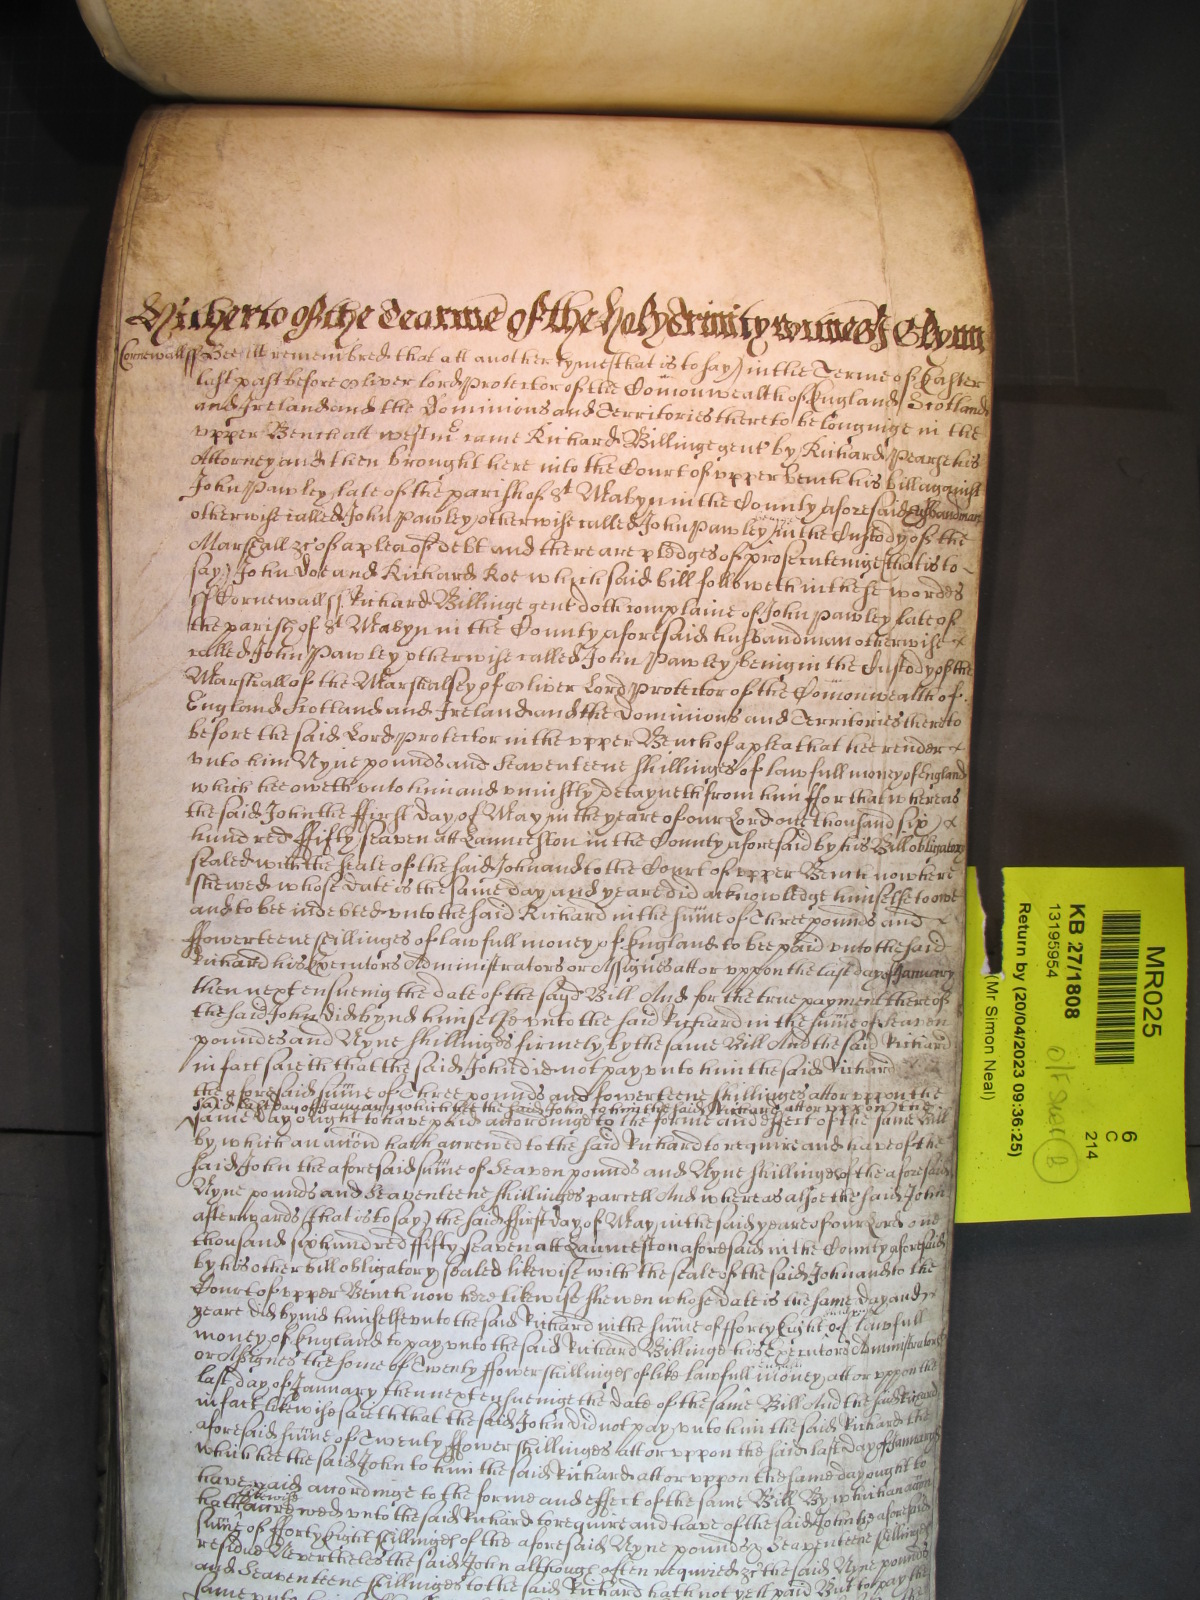 Hitherto of the Tearme of the Holy Trinity Glynn
Cornewall ss Bee itt remembred that att another tyme (that is to say) in the Terme of Easter
last past before Oliver lord Protector of the Comonwealth of England Scotland
and Ireland and the Dominions and Territories thereto belonginge in the
upper Bench att westmr came Richard Billinge gent by Richard Pearse his
Attorney and then brought here into the Court of upper bench his bill against
John Pawley late of the parish of St Mabyn in the County aforesaid husbandman
otherwise called John Pawley otherwise called John Pawley in the Custody of the
Marshall &c of a plea of debt and there are pledges of prosecuteinge (that is to
say) John Doe and Richard Roe which said bill followeth in these wordes
ss Cornewall ss Richard Billinge gent doth complaine of John Pawley late of
the parish of St Mabyn in the County aforesaid husbandman otherwise
called John Pawley otherwise called John Pawley being in the Custody of the
Marshall of the Marshalsey of Oliver Lord Protector of the Comonwealth of
England Scotland and Ireland and the Dominions and Territories thereto
before the said Lord Protector in the upper Bench of a plea that hee render
unto him Nyne pounds and Seaventeene shillinges of lawfull money of England
which hee oweth unto him and uniustly detayneth from him ffor that whereas
the said John the ffirst day of May in the yeare of our Lord one thousand six
hundred ffifty seaven att Launceston in the County aforesaid by his Bill obligatory
sealed with the seale of the said John and to the Court of upper Bench now here
shewed whose date is the same day and yeare did acknowledge himselfe to owe
and to bee indebted unto the said Richard in the sume of Three pounds and
ffowerteene shillinges of lawfull money of England to bee paid unto the said
Richard his Executors Administrators or Assignes att or uppon the last day of January
then next ensueing the date of the sayd Bill And for the true payment thereof
the said John did bynd himselfe unto the said Richard in the sume of Seaven
poundes and Nyne shillinges firmely by the same Bill And the said Richard
in fact saieth that the said John did not pay unto him the said Richard
the aforesaid sume of Three pounds and ffowerteene shillinges att or uppon the
said last day of January which hee the said John to him the said Richard att or uppon the
same day ought to have paid accordinge to the forme and effect of the same bill
by which an accon hath accrewed to the said Richard to require and have of the
said John the aforesaid sume of Seaven pounds and Nyne shillinges of the aforesaid
Nyne pounds and Seaventeene shillinges parcell And whereas alsoe the said John
afterwards (that is to say) the said ffirst day of May in the said yeare of our Lord one
thousand six hundred ffifty seaven att Launceston aforesaid in the County aforesaid
by his other bill obligatory sealed likewise with the seale of the said John and to the
Court of upper Bench now here likewise shewen whose date is the same day and
yeare did bynd himselfe unto the said Richard in the sume of fforty Eight of lawfull
money of England to pay unto the said Richard Billinge his Executors Administrators
or Assignes the some of Twenty ffower shillinges of like lawfull money att or uppon the
last day of January then next ensueinge the date of the same Bill And the said Richard
in fact likewise saieth that the said John did not pay unto him the said Richard the
aforesaid sume of Twenty ffower shillinges att or uppon the said last day of January
which hee the said John to him the said Richard att or uppon the same day ought to
have paid accordinge to the forme and effect of the same Bill By which an accon
hath likewise accrewed unto the said Richard to require and have of the said John the aforesaid
sume of fforty Eight shillinges of the aforesaid Nyne pounds & Seaventeene shillinges
residue Nevertheles the said John although often required &c the said Nyne pounds
and Seaventeene shillinges to the said Richard hath not yett paid But to pay the
same unto
MR025
6
C
214
KB 27/1808
13195954
O/F Seer B
Return by (20/04/2023 09:36:25)
(Mr Simon Neal)